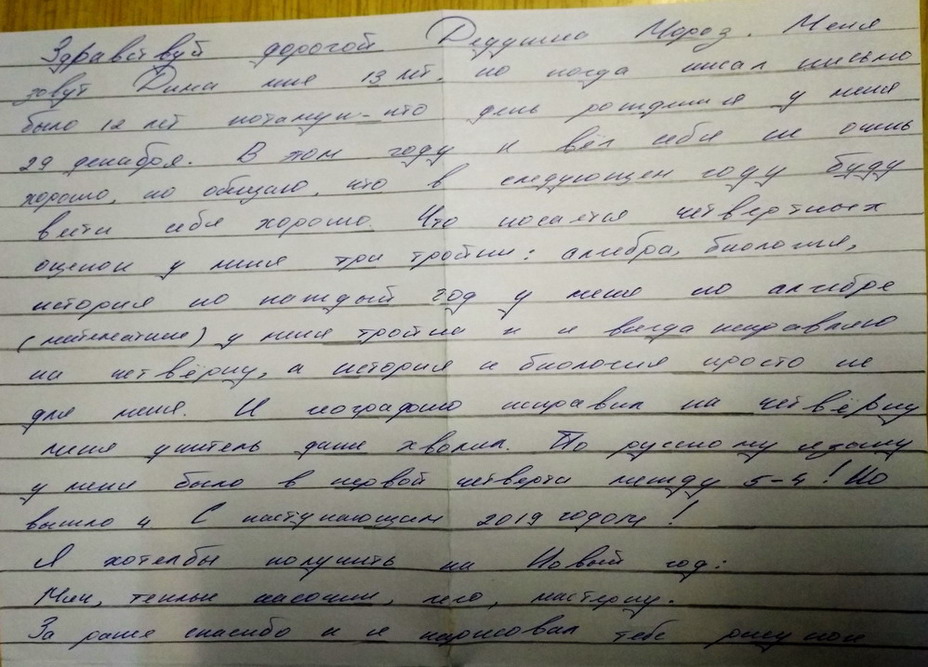 Здравствуй дорогой Дедушка Мороз. Меня
зовут Дима мне 13 лет, но когда писал письмо
было 12 лет потамук-что день рождения у меня
29 декабря. В том году я вёл себя не очень
хорошо, но обещаю, что в следующем году буду
вести себя хорошо. Что косается четвертных
оценок у меня три тройки: алгебра, биология,
история но каждый год у меня по алгебре
(математике) у меня тройка и я всегда исправляю
на четвёрку, а история и биология просто не
для меня. И географию исправил на четвёрку
меня учитель даже хвалил. По русскому языку
у меня было в первой четверти между 5-4! Но
вышло 4 С наступающим 2019 годом!
Я хотелбы получить на Новый год:
Мяч, теплые носочки, лего, мастерку.
За ранее спасибо и я нарисовал тебе рисунок